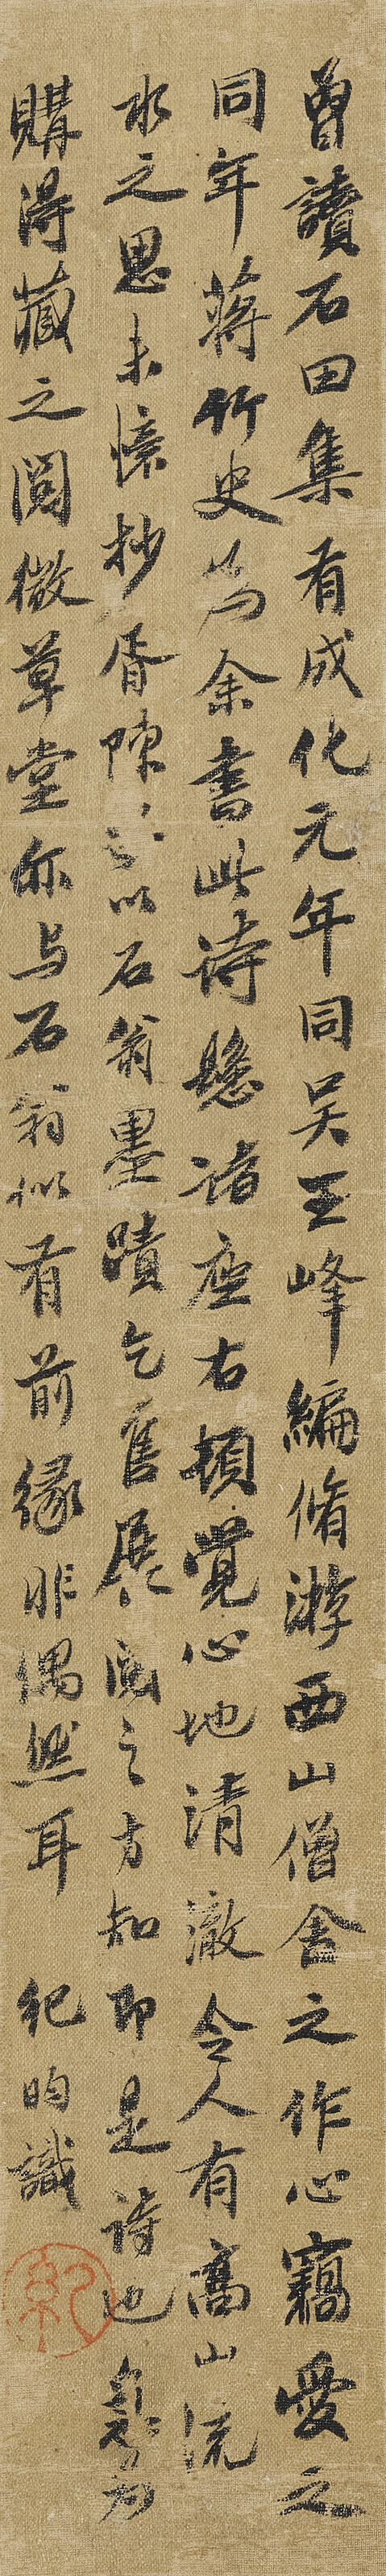 曾讀石田集有成化元年同吴玉峰編脩游西山僧舍之作心竊愛之
同年蔣竹史為余書此詩懸諸座右頓覺心地清澈令人有高山流
水之思未懷抄胥陳以石翁墨蹟乞售展閱之方知即是詩也為
購得藏之閱微草堂亦与石翁似有前緣非偶然耳 紀昀識
紀